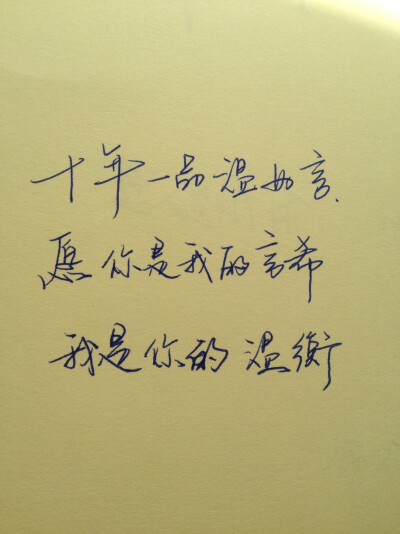 十年一品温如言、
愿你是我的言希
我是你的温衡